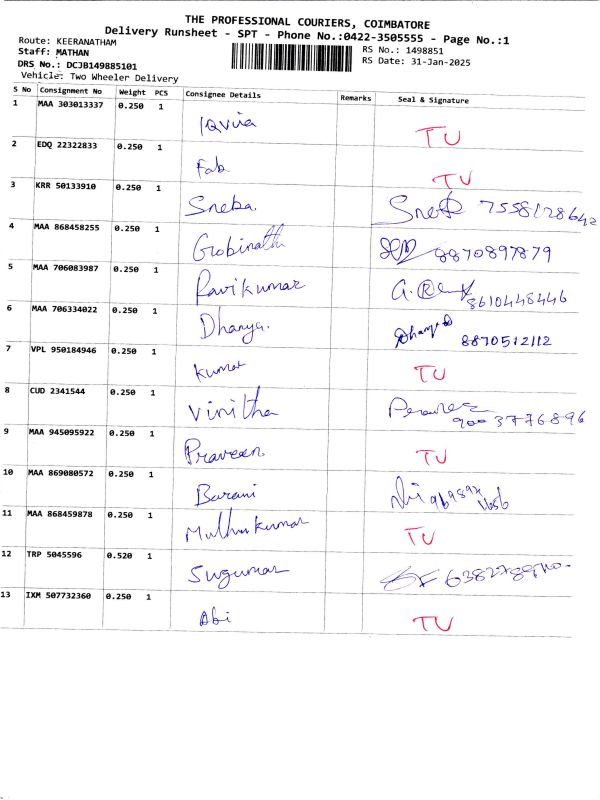 THE PROFESSIONAL COURIERS, COIMBATORE
Delivery Runsheet - SPT - Phone No.:0422-3505555 - Page No.:1
Route: KEERANATHAM
RS No.: 1498851
Staff: MATHAN
RS Date: 31-Jan-2025
DRS No.: DCJB149885101
Vehicle: Two Wheeler Delivery
S No Consignment No Weight PCS Consignee Details Remarks Seal & Signature
1 MAA 303013337 0.250 1 Iqvia TU
2 EDQ 22322833 0.250 1 Fab TU
3 KRR 50133910 0.250 1 Sneba 7558128642
4 MAA 868458255 0.250 1 Gobinath 8870897879
5 MAA 706083987 0.250 1 Ravikumar 8610448446
6 MAA 706334022 0.250 1 Dhanya. 8870512112
7 VPL 950184946 0.250 1 Kumar TU
8 CUD 2341544 0.250 1 Vinitha 9003776896
9 MAA 945095922 0.250 1 Praveen TU
10 MAA 869080572 0.250 1 Barani
11 MAA 868459878 0.250 1 Muthukumar TU
12 TRP 5045596 0.520 1 Sugumar
13 IXM 507732360 0.250 1 Abi TU